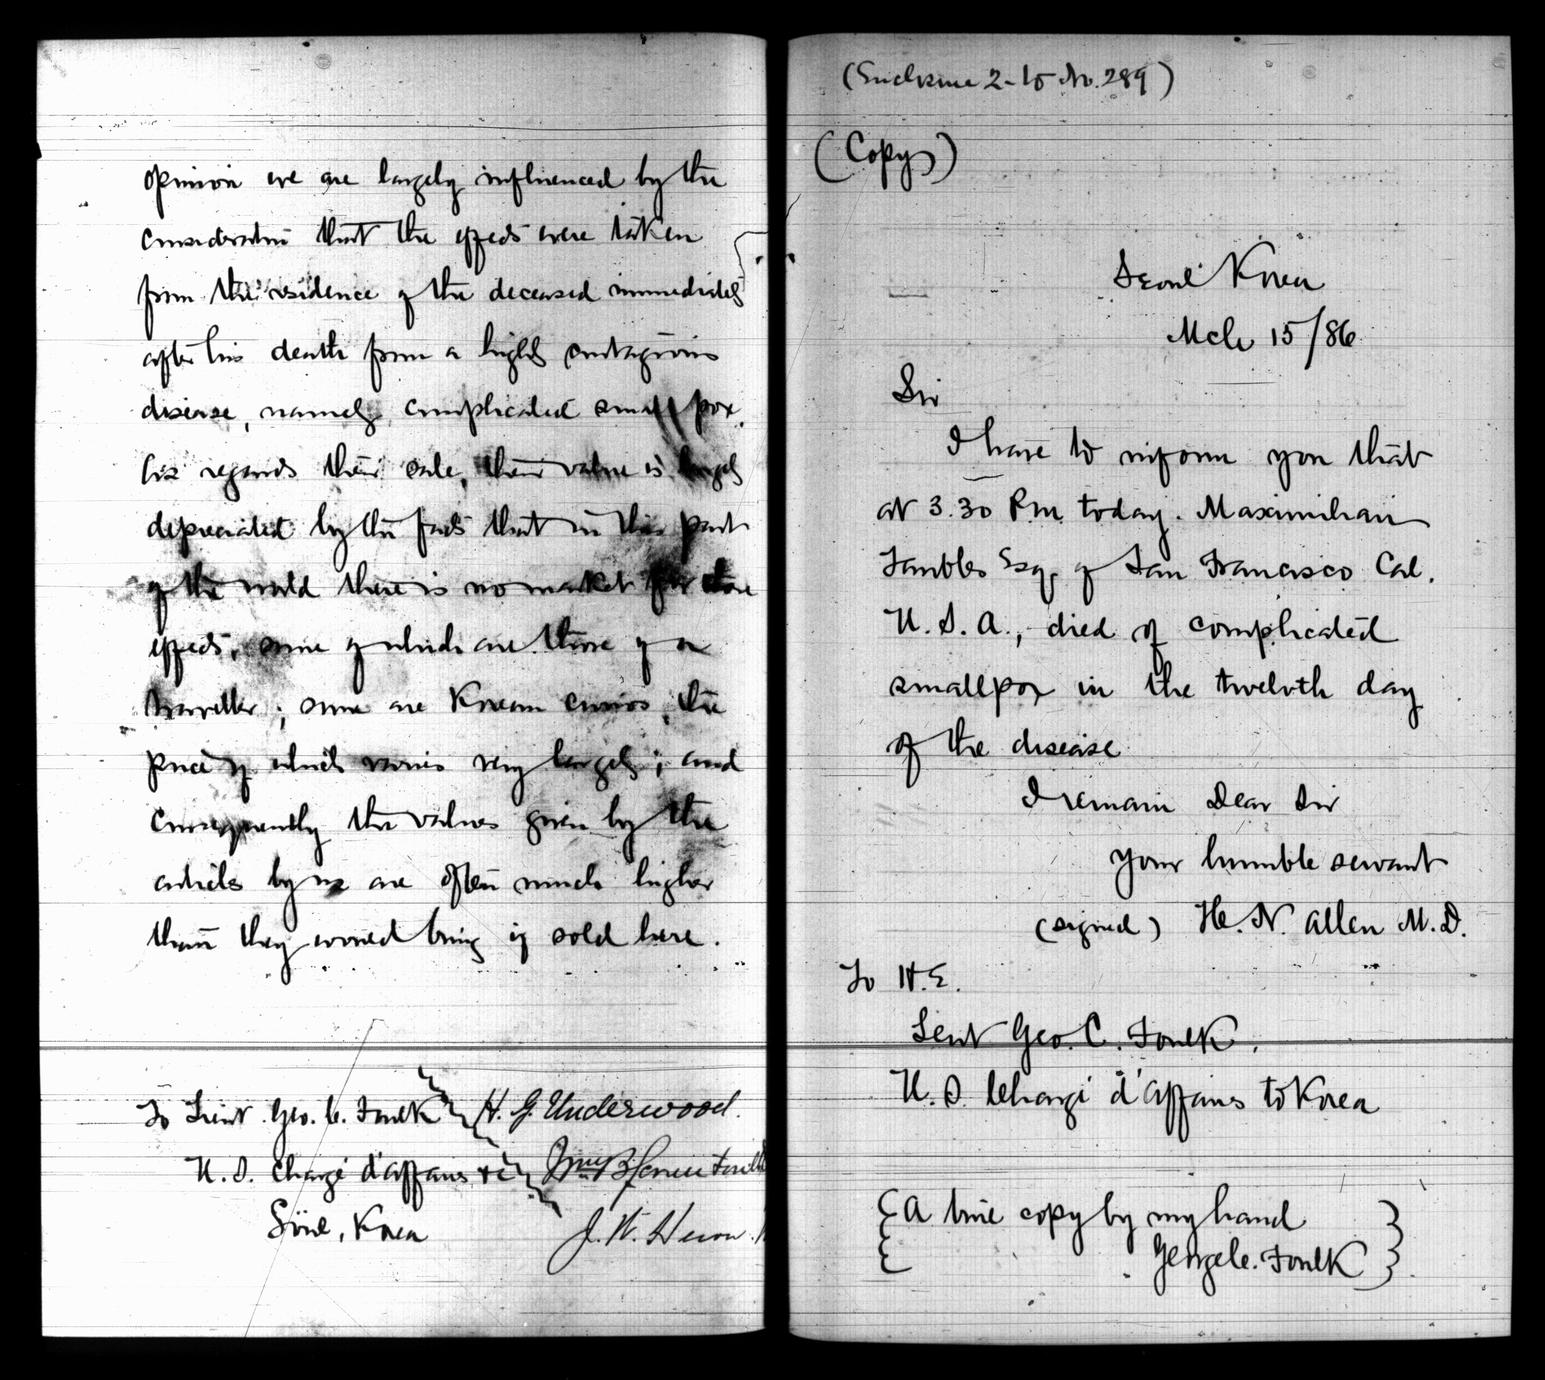 opinion we are largely influenced by the
consideration that the effects were taken
from the residence of the deceased immediately
after his death from a highly contagious
disease, namely complicated small pox.
As regards their sale, their value is largely
depreciated by the facts that in this part
of the world there is no market for
effects, some of which are those of a
traveller; some are Korean curios, the
price of which varies very largely; and
consequently the values given by the
articles by us are often much higher
than they would bring if sold here.
To Lieut. Geo. C. Foulk
U.S. Chargé d'affaires &c
Söul, Korea
H. G. Underwood.
Wm. B.
J. W. Heron.
(Enclosure 2 - to No. 289)
(Copy)
Seoul Korea
Mch 15/86
Sir
I have to inform you that
at 3.30 P.m. today. Maximilian
Taubles Esq. of San Francisco Cal.
U.S.A., died of complicated
smallpox in the twelvth day
of the disease
I remain Dear Sir
your humble servant
(signed) H. N. Allen M.D.
To H.E.
Lieut Geo. C. Foulk.
U.S. Chargé d'affaires to Korea
(A true copy by my hand
George C. Foulk)